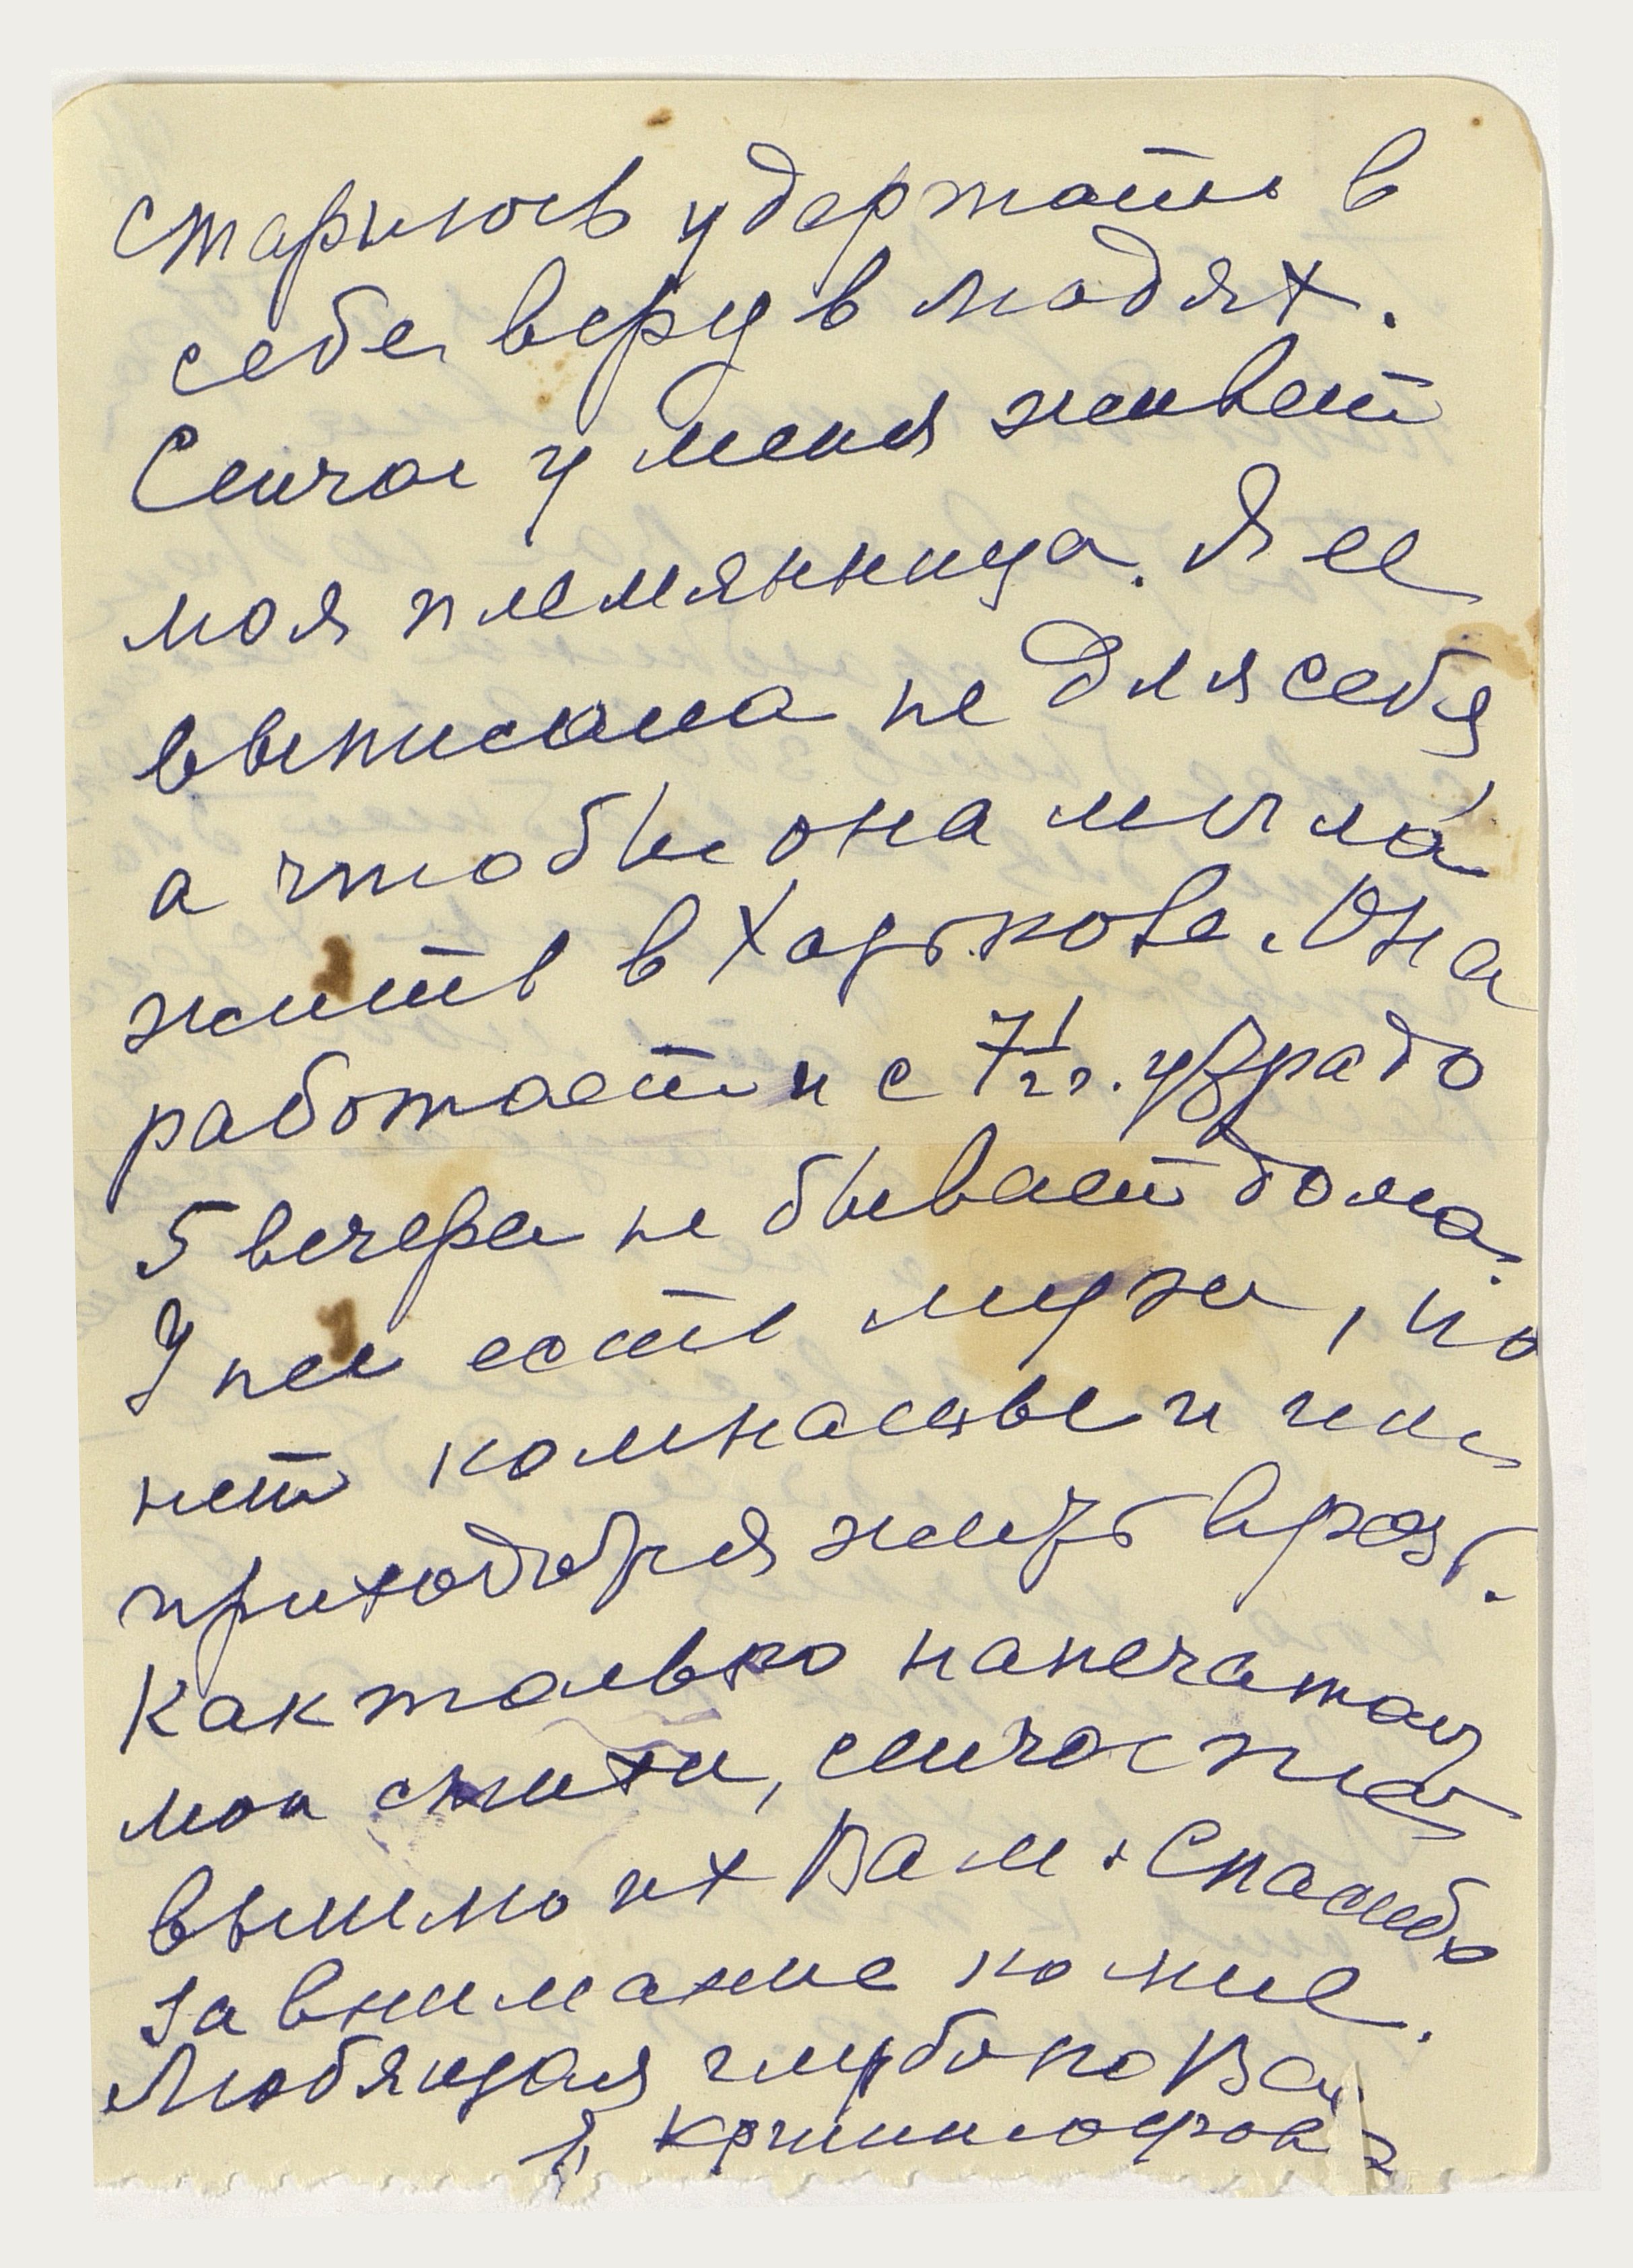 стараюсь удержать в
себе веру в людях.
Сейчас у меня живет
моя племянница. Я ее
выписала не для себя
а чтобы она могла
жить в Харькове. Она
работает и с 7 1/2 ч. утра до
5 вечера не бывает дома.
У нее есть муж, но
нет комнаты и им
приходится жить врозь.
Как только напечатаю
мои стихи, сейчас же
вышлю их Вам. Спасибо
за внимание ко мне.
Любящая глубоко Вас